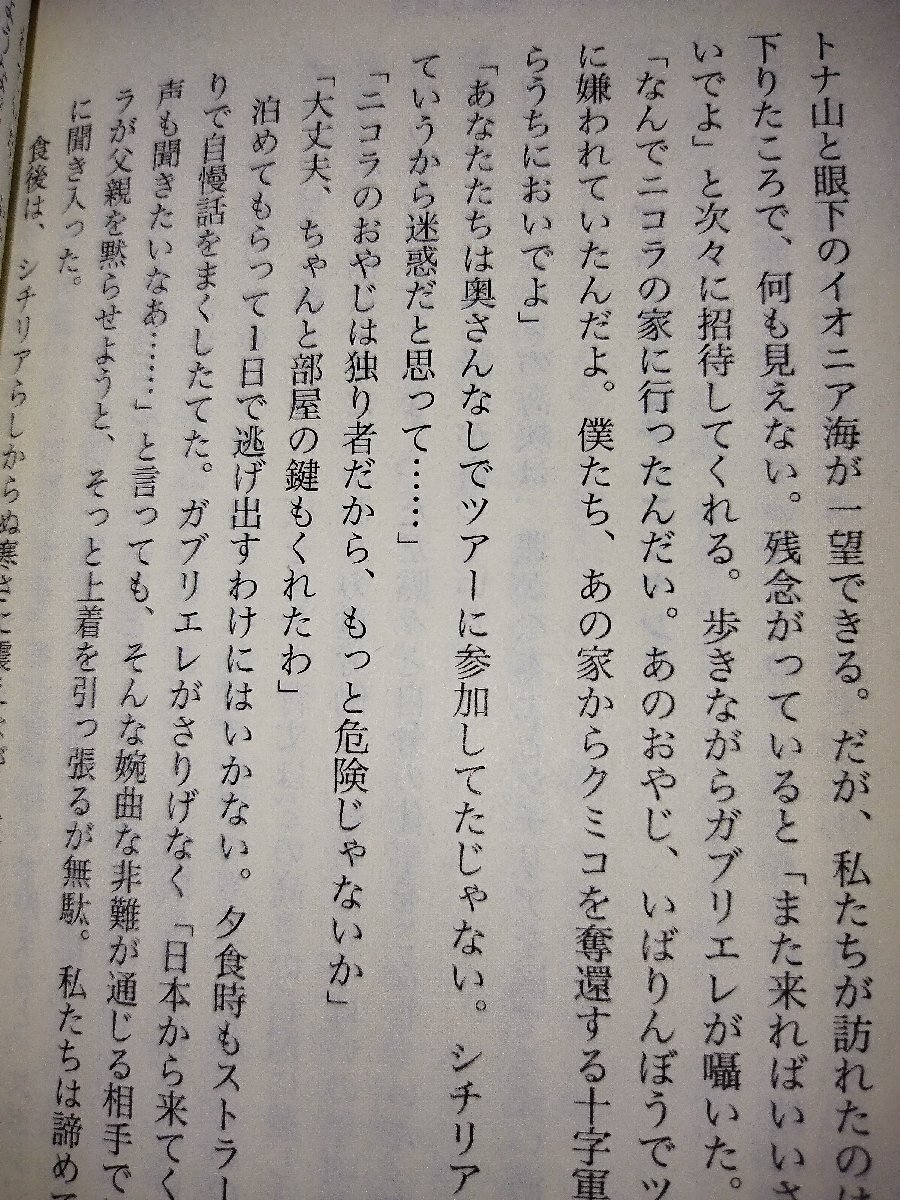 トナ山と眼下のイオニア海が一望できる。だが、私たちが訪れたのは
下りたころで、何も見えない。残念がっていると「また来ればいいさ
いでよ」と次々に招待してくれる。歩きながらガブリエレが囁いた。
「なんでニコラの家に行ったんだい。あのおやじ、いばりんぼうでツ
に嫌われていたんだよ。僕たち、あの家からクミコを奪還する十字軍
らうちにおいでよ」
「あなたたちは奥さんなしでツアーに参加してたじゃない。シチリア
ていうから迷惑だと思って……」
「ニコラのおやじは独り者だから、もっと危険じゃないか」
「大丈夫、ちゃんと部屋の鍵もくれたわ」
泊めてもらって1日で逃げ出すわけにはいかない。夕食時もストラー
りで自慢話をまくしたてた。ガブリエレがさりげなく「日本から来てく
声も聞きたいなあ……」と言っても、そんな婉曲な非難が通じる相手で
ラが父親を黙らせようと、そっと上着を引っ張るが無駄。私たちは諦めて
に聞き入った。
食後は、シチリアらしからぬ寒さに震え